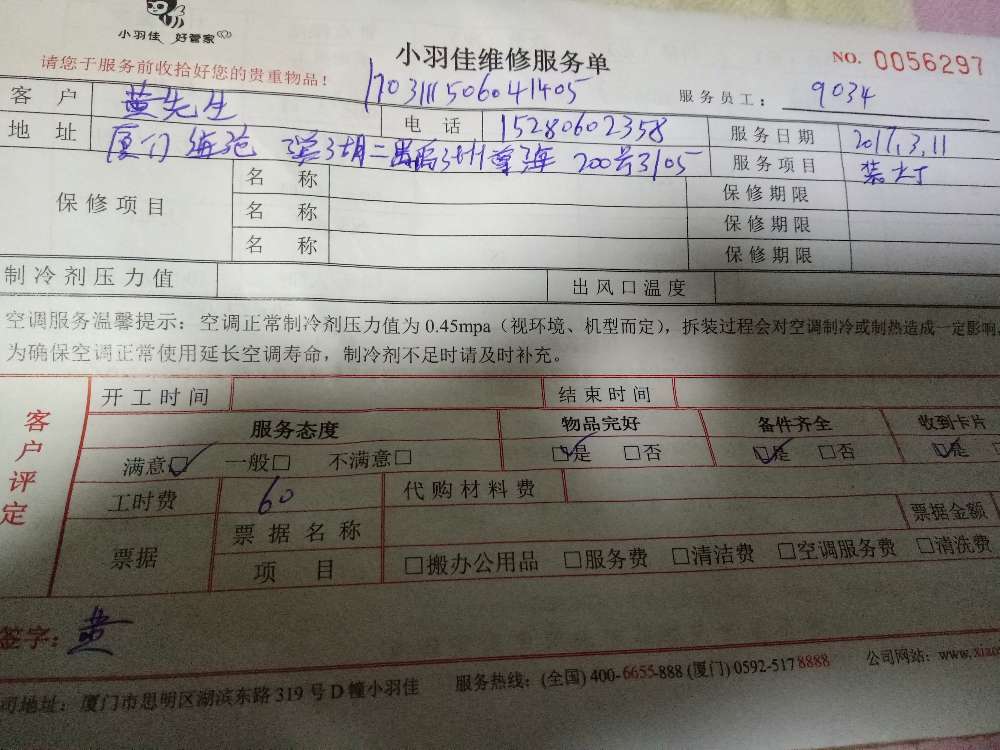 小羽佳 好管家
小羽佳维修服务单
NO. 0056297
请您于服务前收拾好您的贵重物品！
1703111506041405
服务员工： 9034
客户 黄先生 电话 15280602358 服务日期 2017.3.11
地址 厦门海沧 200号3105 服务项目 装灯
保修项目 名称 保修期限
名称 保修期限
名称 保修期限
制冷剂压力值 出风口温度
空调服务温馨提示：空调正常制冷剂压力值为 0.45mpa（视环境、机型而定），拆装过程会对空调制冷或制热造成一定影响
为确保空调正常使用延长空调寿命，制冷剂不足时请及时补充。
客户评定
开工时间 结束时间
服务态度 物品完好 备件齐全 收到卡片
满意☑ 一般□ 不满意□ ☑是 □否 ☑是 □否 ☑是
工时费 60 代购材料费
票据 票据名称 票据金额
项目 □搬办公用品 □服务费 □清洁费 □空调服务费 □清洗费
签字：黄
司地址：厦门市思明区湖滨东路 319 号 D 幢小羽佳 服务热线：(全国) 400-6655-888 (厦门) 0592-5178888 公司网站：www.xiao